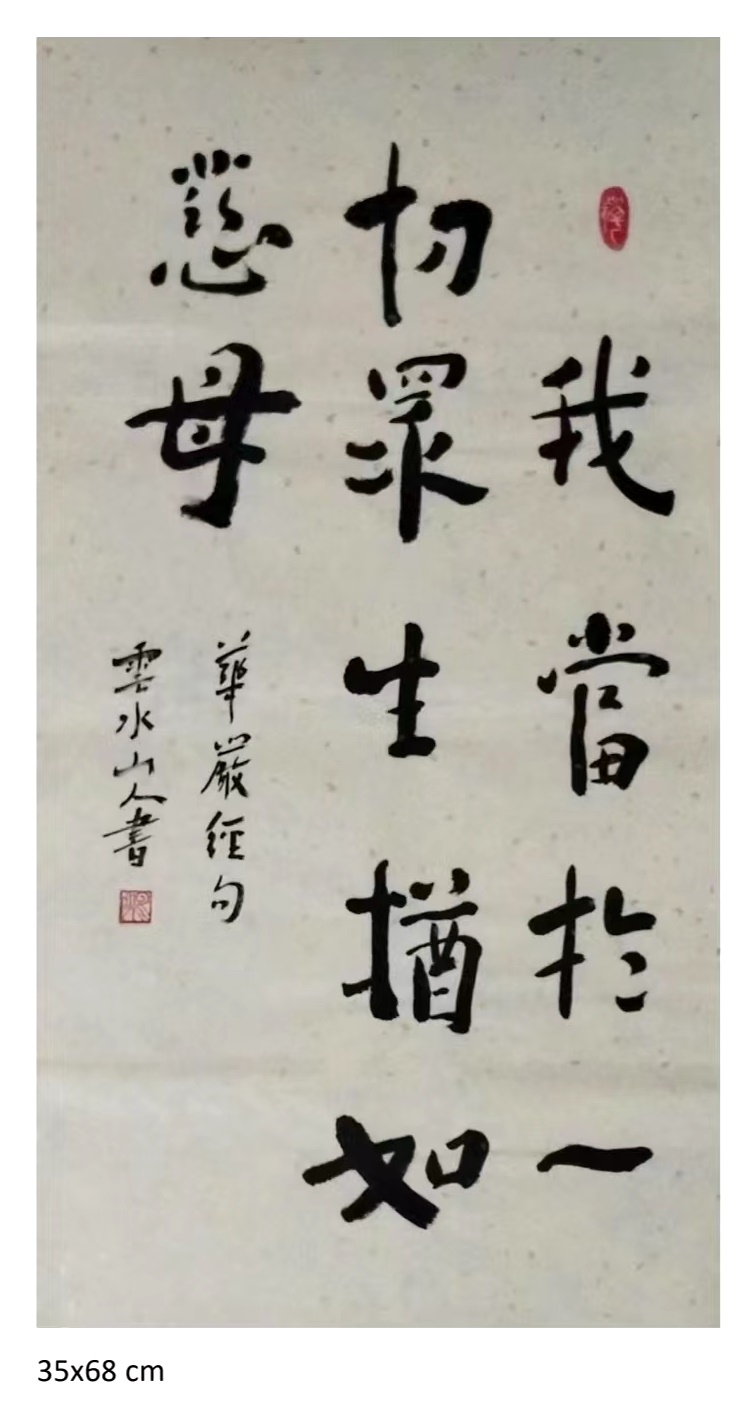 我當於一
切眾生猶如
慈母
華嚴經句
雲水山人書
35x68 cm